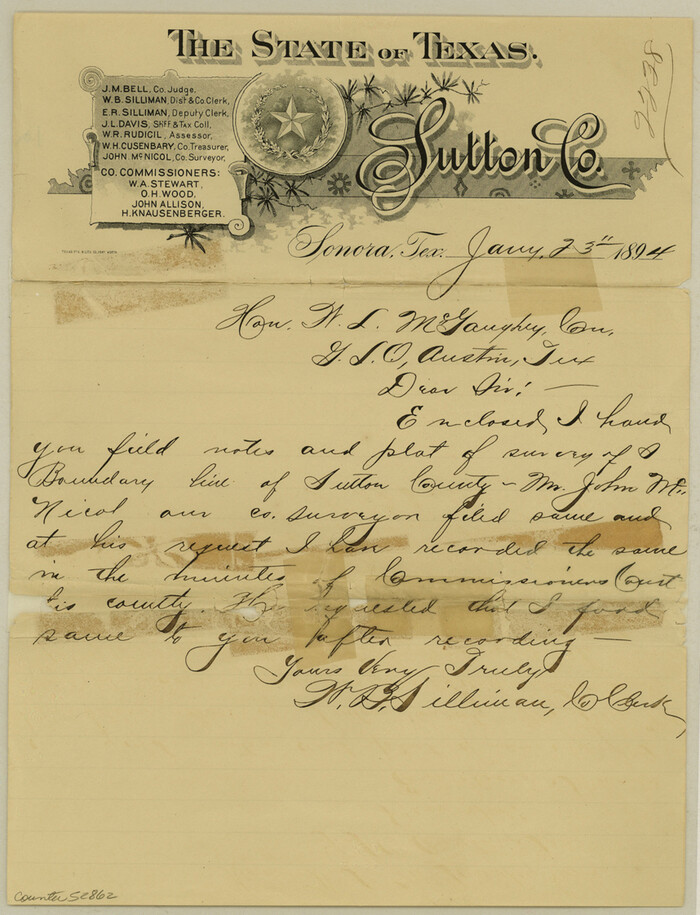 THE STATE OF TEXAS.
2238
J.M. BELL, Co. Judge.
W.B. SILLIMAN, Dist & Co. Clerk,
E.R. SILLIMAN, Deputy Clerk,
J.L. DAVIS, Shff & Tax Coll.
W.R. RUDICIL, Assessor,
W.H. CUSENBARY, Co. Treasurer,
JOHN McNICOL, Co. Surveyor,
CO. COMMISSIONERS:
W.A. STEWART,
O.H. WOOD,
JOHN ALLISON,
H. KNAUSENBERGER.
Sutton Co.
Sonora, Tex. Jany. 23" 1894
Hon. W. L. McGaughey, Com.
G. L. O, Austin, Tex
Dear Sir! —
Enclosed, I hand
you field notes and plat of survey of S
Boundary line of Sutton County - Mr. John Mc
Nicol our co. surveyor filed same and
at his request I have recorded the same
in the minutes of Commissioners Court
his county. He requested that I forwd
same to you after recording —
Yours Very Truly
W. B. Silliman, Co Clerk,
Counter 52862